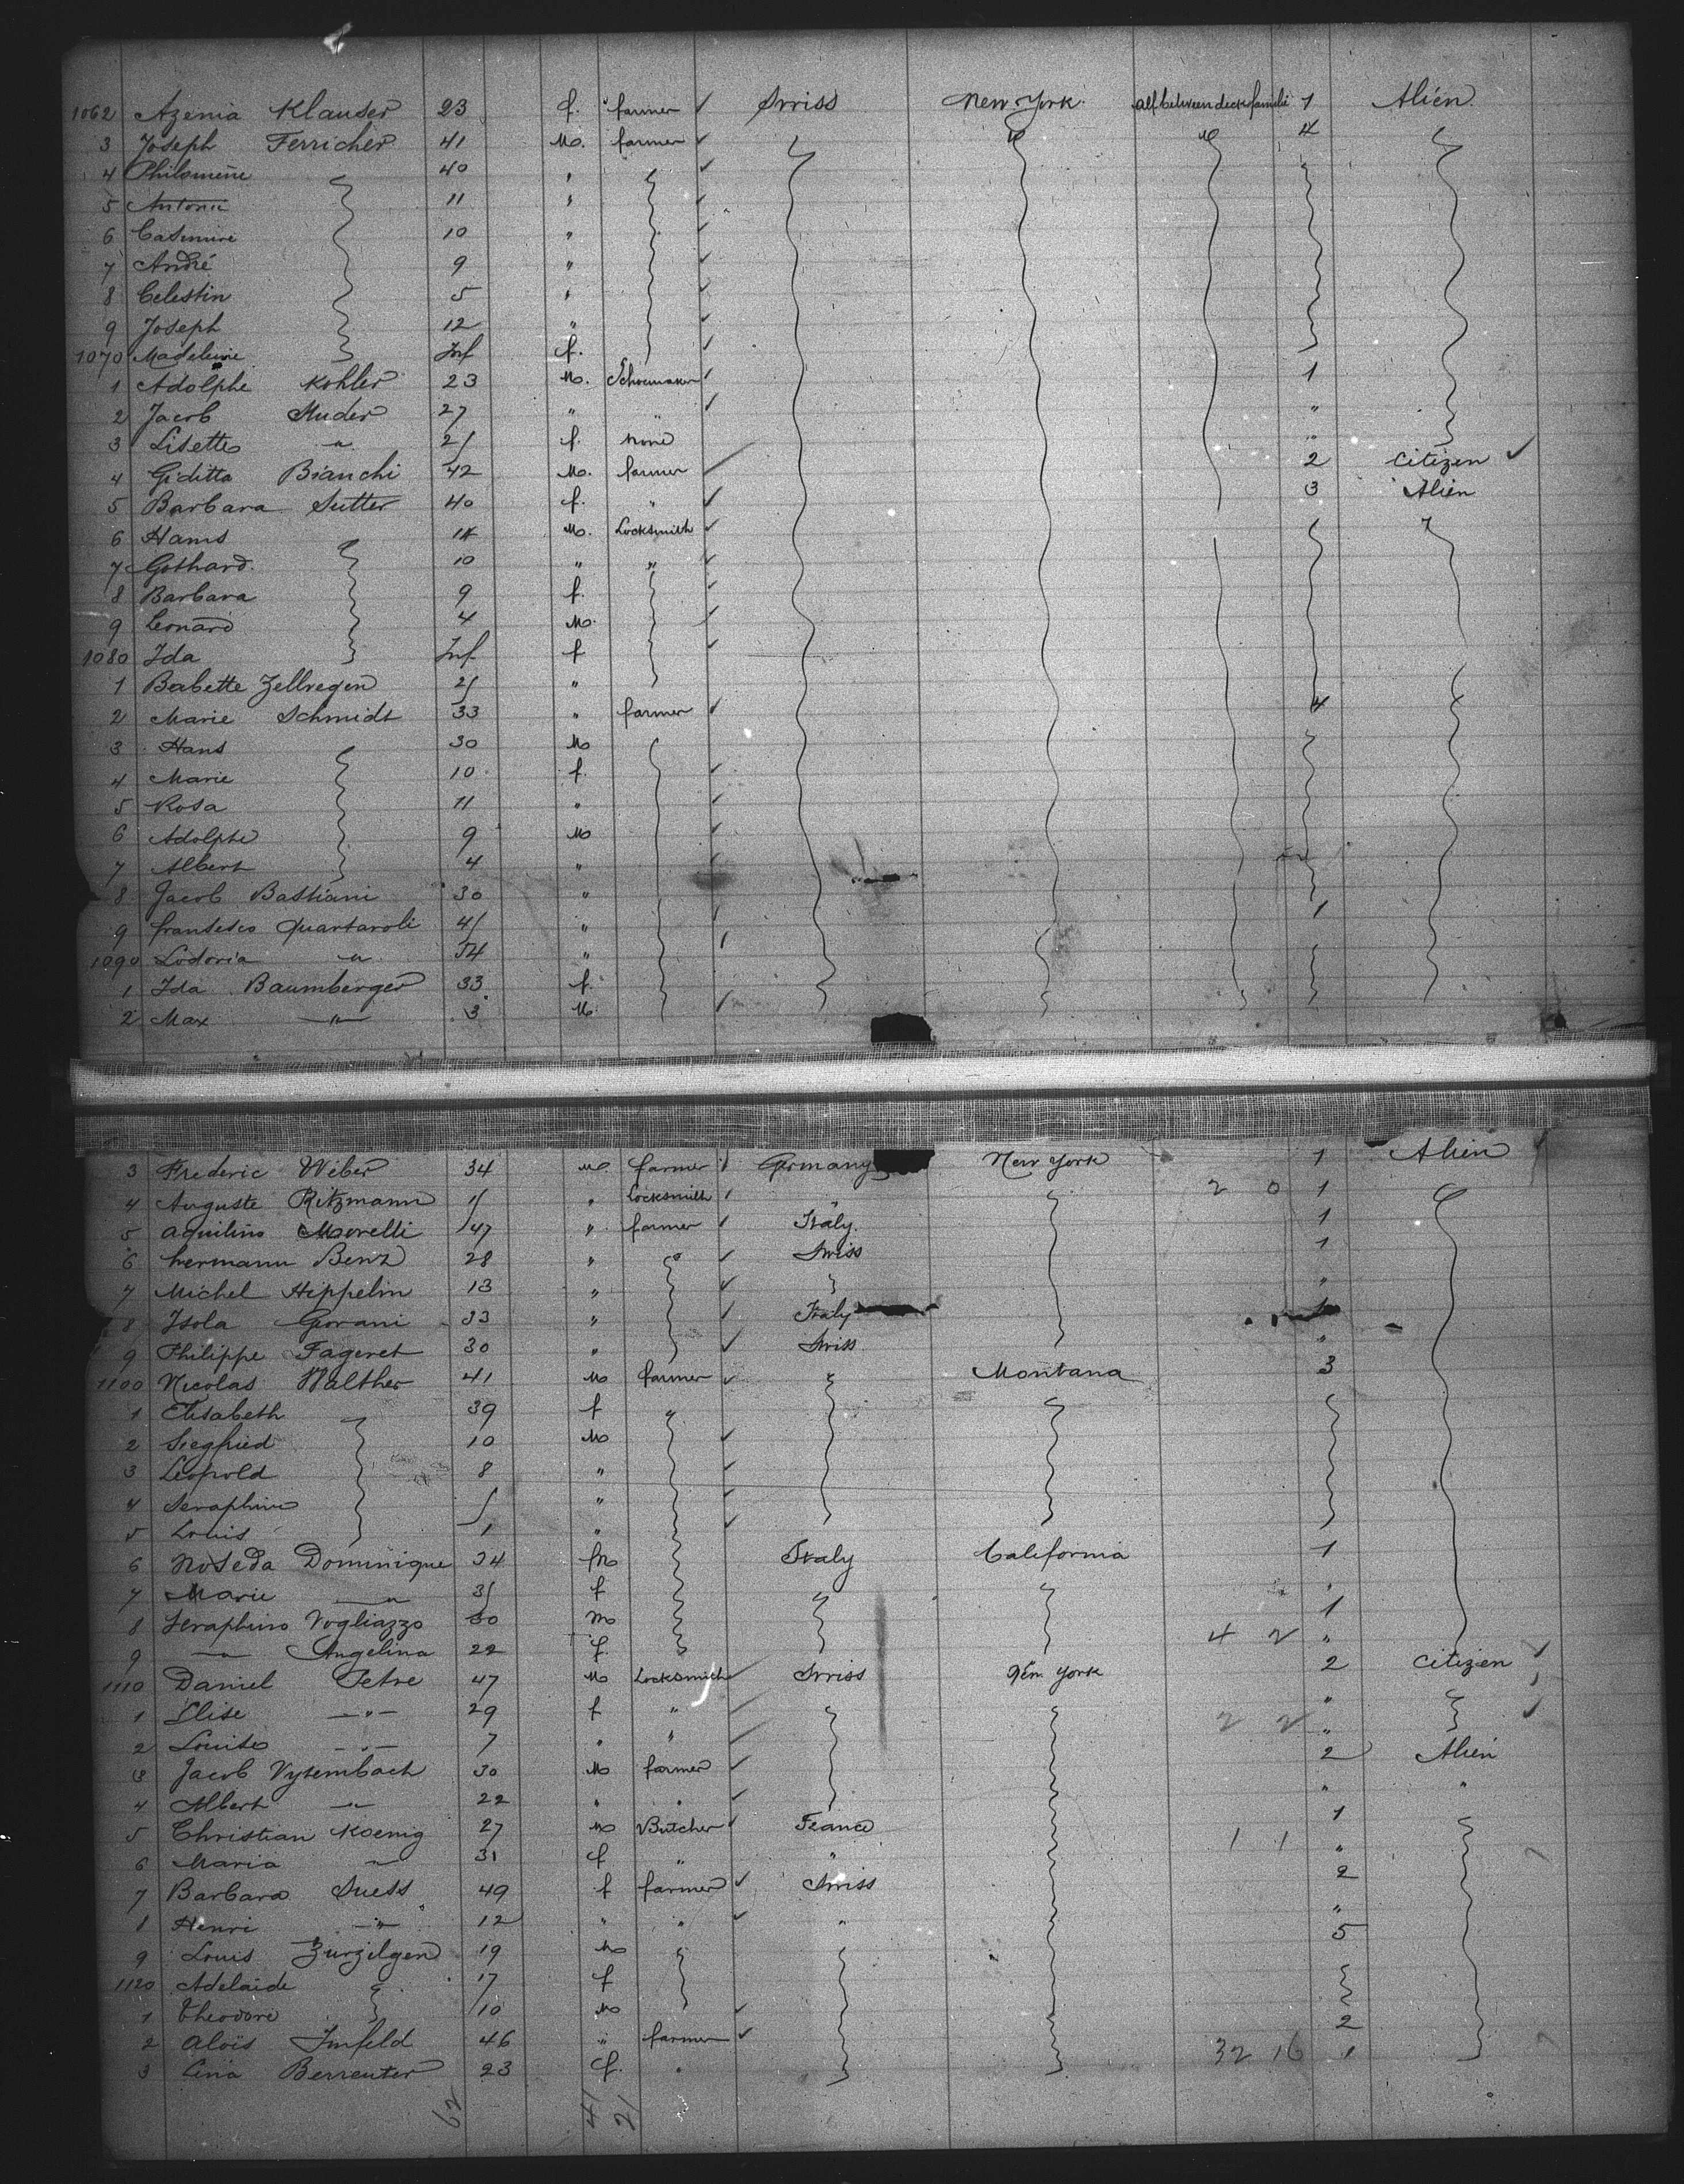 1062 Azenia Klauser 23 f. farmer Swiss New York alf between deck familie 1 Alien
3 Joseph Ferricher 41 M. farmer " " 4
4 Philomène 40 "
5 Antonie 11 "
6 Casimire 10 "
7 André 9 "
8 Celestin 5 "
9 Joseph 12 "
1070 Madeleine Inf f.
1 Adolphe Kohler 23 M. Schoemaker 1
2 Jacob Muder 27 " " "
3 Lisette " 21 f. none "
4 Giditta Bianchi 42 M. farmer 2 Citizen
5 Barbara Sutter 40 f. " 3 Alien
6 Hans 14 M. Locksmith
7 Gothard 10 " "
8 Barbara 9 f.
9 Leonard 4 M.
1080 Ida Inf f
1 Babette Zellregen 21 "
2 Marie Schmidt 33 " farmer 4
3 Hans 30 M
4 Marie 10 f.
5 Rosa 11 "
6 Adolphe 9 M
7 Albert 4 "
8 Jacob Bastiani 30 "
9 Fransesco Quartaroli 41 " 1
1090 Lodoria " 54 "
1 Ida Baumberger 33 f.
2 Max " 3 M
3 Frederic Weber 34 M. farmer Germany New York 1 Alien
4 Auguste Ritzmann 11 " Locksmith 2 0 1
5 Aquilino Morelli 47 " farmer Italy 1
6 Hermann Benz 28 " Swiss 1
7 Michel Hippelin 13 " "
8 Isola Giovani 33 " Italy
9 Philippe Fageret 30 " Swiss "
1100 Nicolas Walther 41 M farmer Montana 3
1 Elisabeth 39 f "
2 Siegfried 10 M
3 Leopold 8 "
4 Seraphine "
5 Louis 1 "
6 Noseda Dominique 34 m Italy California 1
7 Marie " 31 f "
8 Seraphino Vogliazzo 30 m 1
9 " Angelina 22 f. 4 2 "
1110 Daniel Petre 47 M Locksmith Swiss New York 2 Citizen
1 Elise " 29 f " "
2 Louise " 7 " " 2 2 "
3 Jacob Vytembach 30 M farmer 2 Alien
4 Albert " 22 " " " "
5 Christian Koenig 27 M Butcher France 1
6 Maria " 31 f " " 1 1 "
7 Barbara Suess 49 f farmer Swiss 2
8 Henri " 12 " " " "
9 Louis Zurzilgen 19 M 5
1120 Adelaide 17 f
1 Theodore 10 M
2 Aloïs Imfeld 46 " farmer 2
3 Lina Berreuter 23 f. " 32 16 1
62 41 21